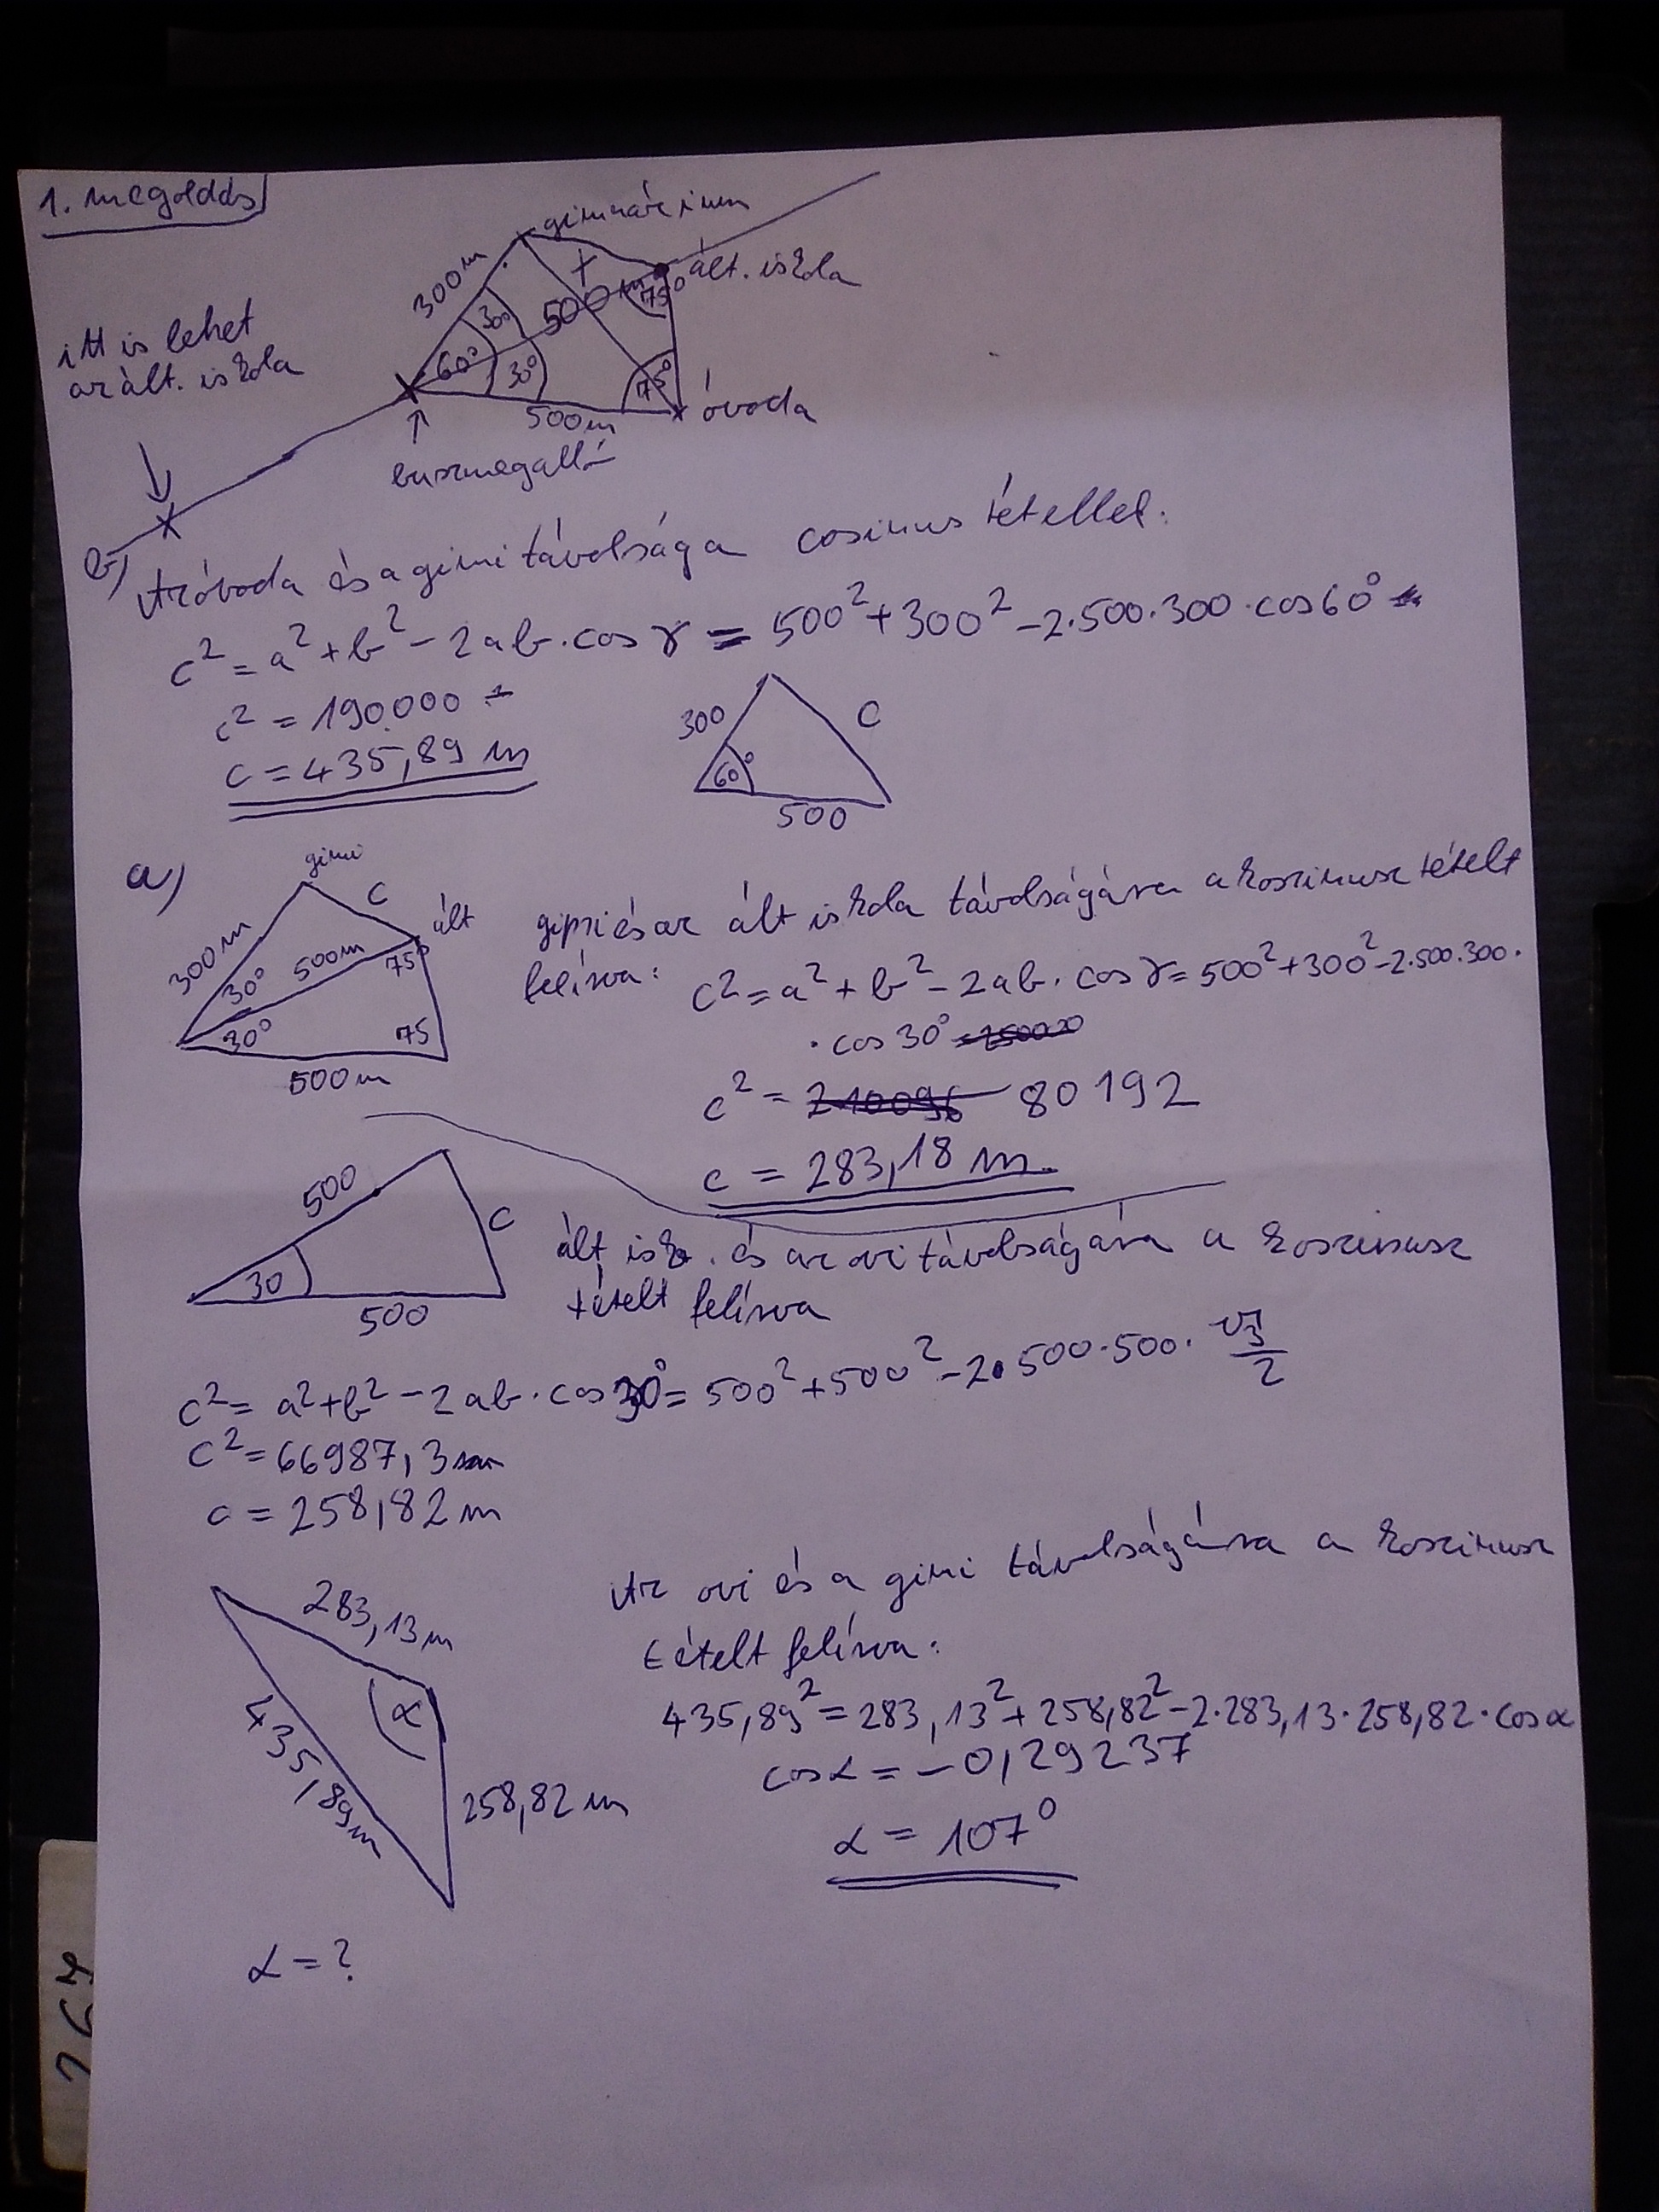 1. megoldás
gimnázium
300 m
30°
500 m
75°
ált. iskola
itt is lehet
az ált. iskola
60°
30°
75°
óvoda
500 m
↑
buszmegálló
b)
Az óvoda és a gimi távolsága cosinus tétellel:
c² = a² + b² - 2ab · cos γ = 500² + 300² - 2·500·300 · cos 60°
c² = 190000
c = 435,89 m
300
c
60°
500
a)
gimi
c
ált
300 m
500 m
30°
75°
30°
75
500 m
gimi és az ált iskola távolságára a koszinusz tételt
felírva: c² = a² + b² - 2ab · cos γ = 500² + 300² - 2·500·300·
· cos 30°
c² = 80192
c = 283,18 m.
500
c
30
500
ált isk. és az ovi távolságára a koszinusz
tételt felírva
c² = a² + b² - 2ab · cos 30° = 500² + 500² - 2·500·500· √3/2
c² = 66987,3
c = 258,82 m
283,13 m
α
435,89 m
258,82 m
Az ovi és a gimi távolságára a koszinusz
tételt felírva:
435,89² = 283,13² + 258,82² - 2·283,13·258,82·cos α
cos α = -0,29237
α = 107°
α = ?